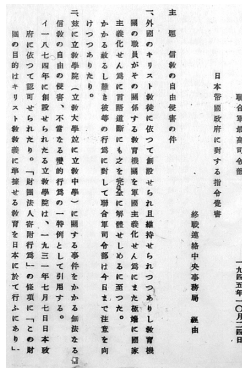 一九四五年一〇月二四日
聯合軍最高司令部
日本帝國政府に對する指令覺書
終戰連絡中央事務局 經由
主題 信敎の自由侵害の件
一、外國のキリスト敎徒に依つて創設せられ且維持せられつつありし敎育機
關の職員がその關する敎育機關を軍國主義化せん爲にまた極端に國家
主義化せん爲に言語道斷にも之を完全に解體せしめるに至つた。
かかる赦るし難き彼等の行爲に對して聯合軍司令部は今日まで注意を向
けつつありたり。
二、玆に立敎學院(立敎大學並に立敎中學)に關する事件をかかる無法なる
信敎の自由の侵害、不當なる變的行爲の一特例として引用する。
イ一八七四年に創設せられたる立敎學院は、一九三一年七月七日日本政
府に依つて認可せられたり。「財團法人寄附行爲」の條項に「この財
團の目的はキリスト敎敎義に準據せる敎育を日本に於て行ふにあり」